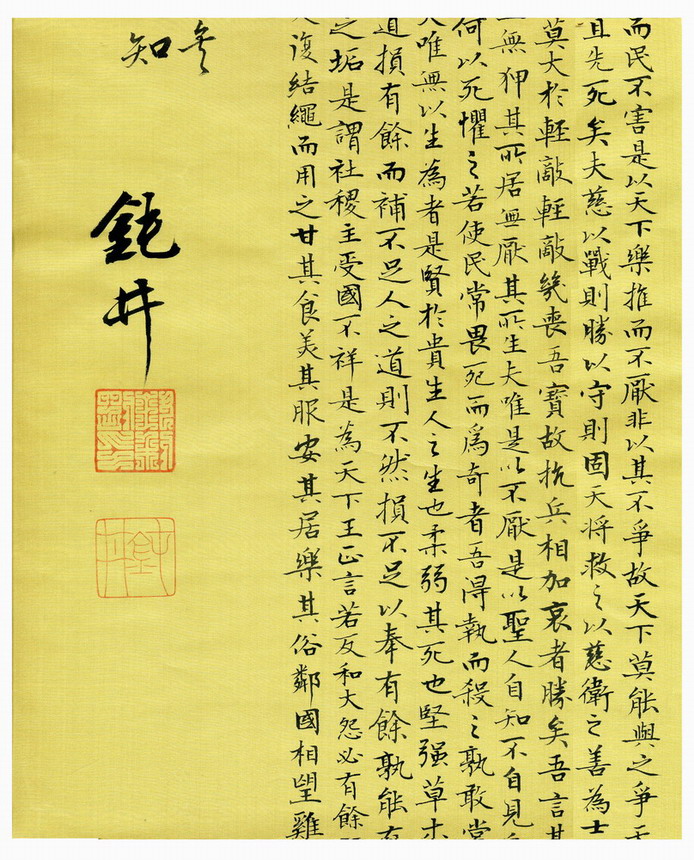 而民不害是以天下樂推而不厭非以其不爭故天下莫能與之爭天
且先死矣夫慈以戰則勝以守則固天將救之以慈衛之善為士
莫大於輕敵輕敵幾喪吾寶故抗兵相加哀者勝矣吾言甚
無狎其所居無厭其所生夫唯是以不厭是以聖人自知不自見
何以死懼之若使民常畏死而爲奇者吾得執而殺之孰敢常
夫唯無以生為者是賢於貴生人之生也柔弱其死也堅强草木
道損有餘而補不足人之道則不然損不足以奉有餘孰能有
之垢是謂社稷主受國不祥是為天下王正言若反和大怨必有餘
人復結繩而用之甘其食美其服安其居樂其俗鄰國相望雞
知
鈍井
鈍井